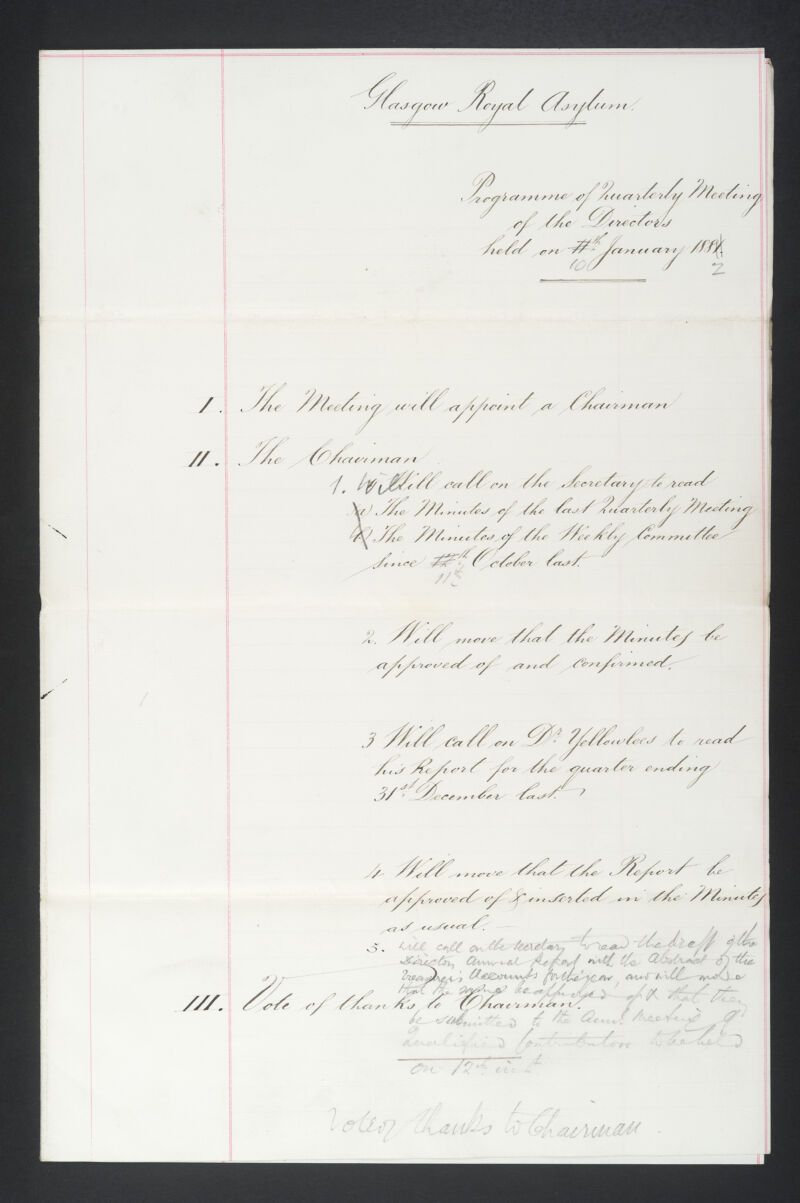 Glasgow Royal Asylum.
Programme of Quarterly Meeting
of the Directors
held on 11th. January 1881.
10 2
I. The Meeting will appoint a Chairman
II. The Chairman
1. Will call on the Secretary to read
a) The Minutes of the last Quarterly Meeting
b) The Minutes of the Weekly Committee
since 12th. October last.
11th
2. Will move that the Minutes be
approved of and confirmed.
3 Will call on Dr. Yellowlees to read
his Report for the quarter ending
31st. December last.
4 Will move that the Report be
approved of & inserted in the Minutes
as usual.
5. Will call on the Secretary to read the draft of the
Directors Annual Report with the Abstract of the
Treasurer's Accounts for the year, and will move
that the same be approved of & that they
III. Vote of thanks to Chairman.
be submitted to the Annl. Meeting of
Qualified Contributors to be held
on 12th inst.
Vote of thanks to Chairman.